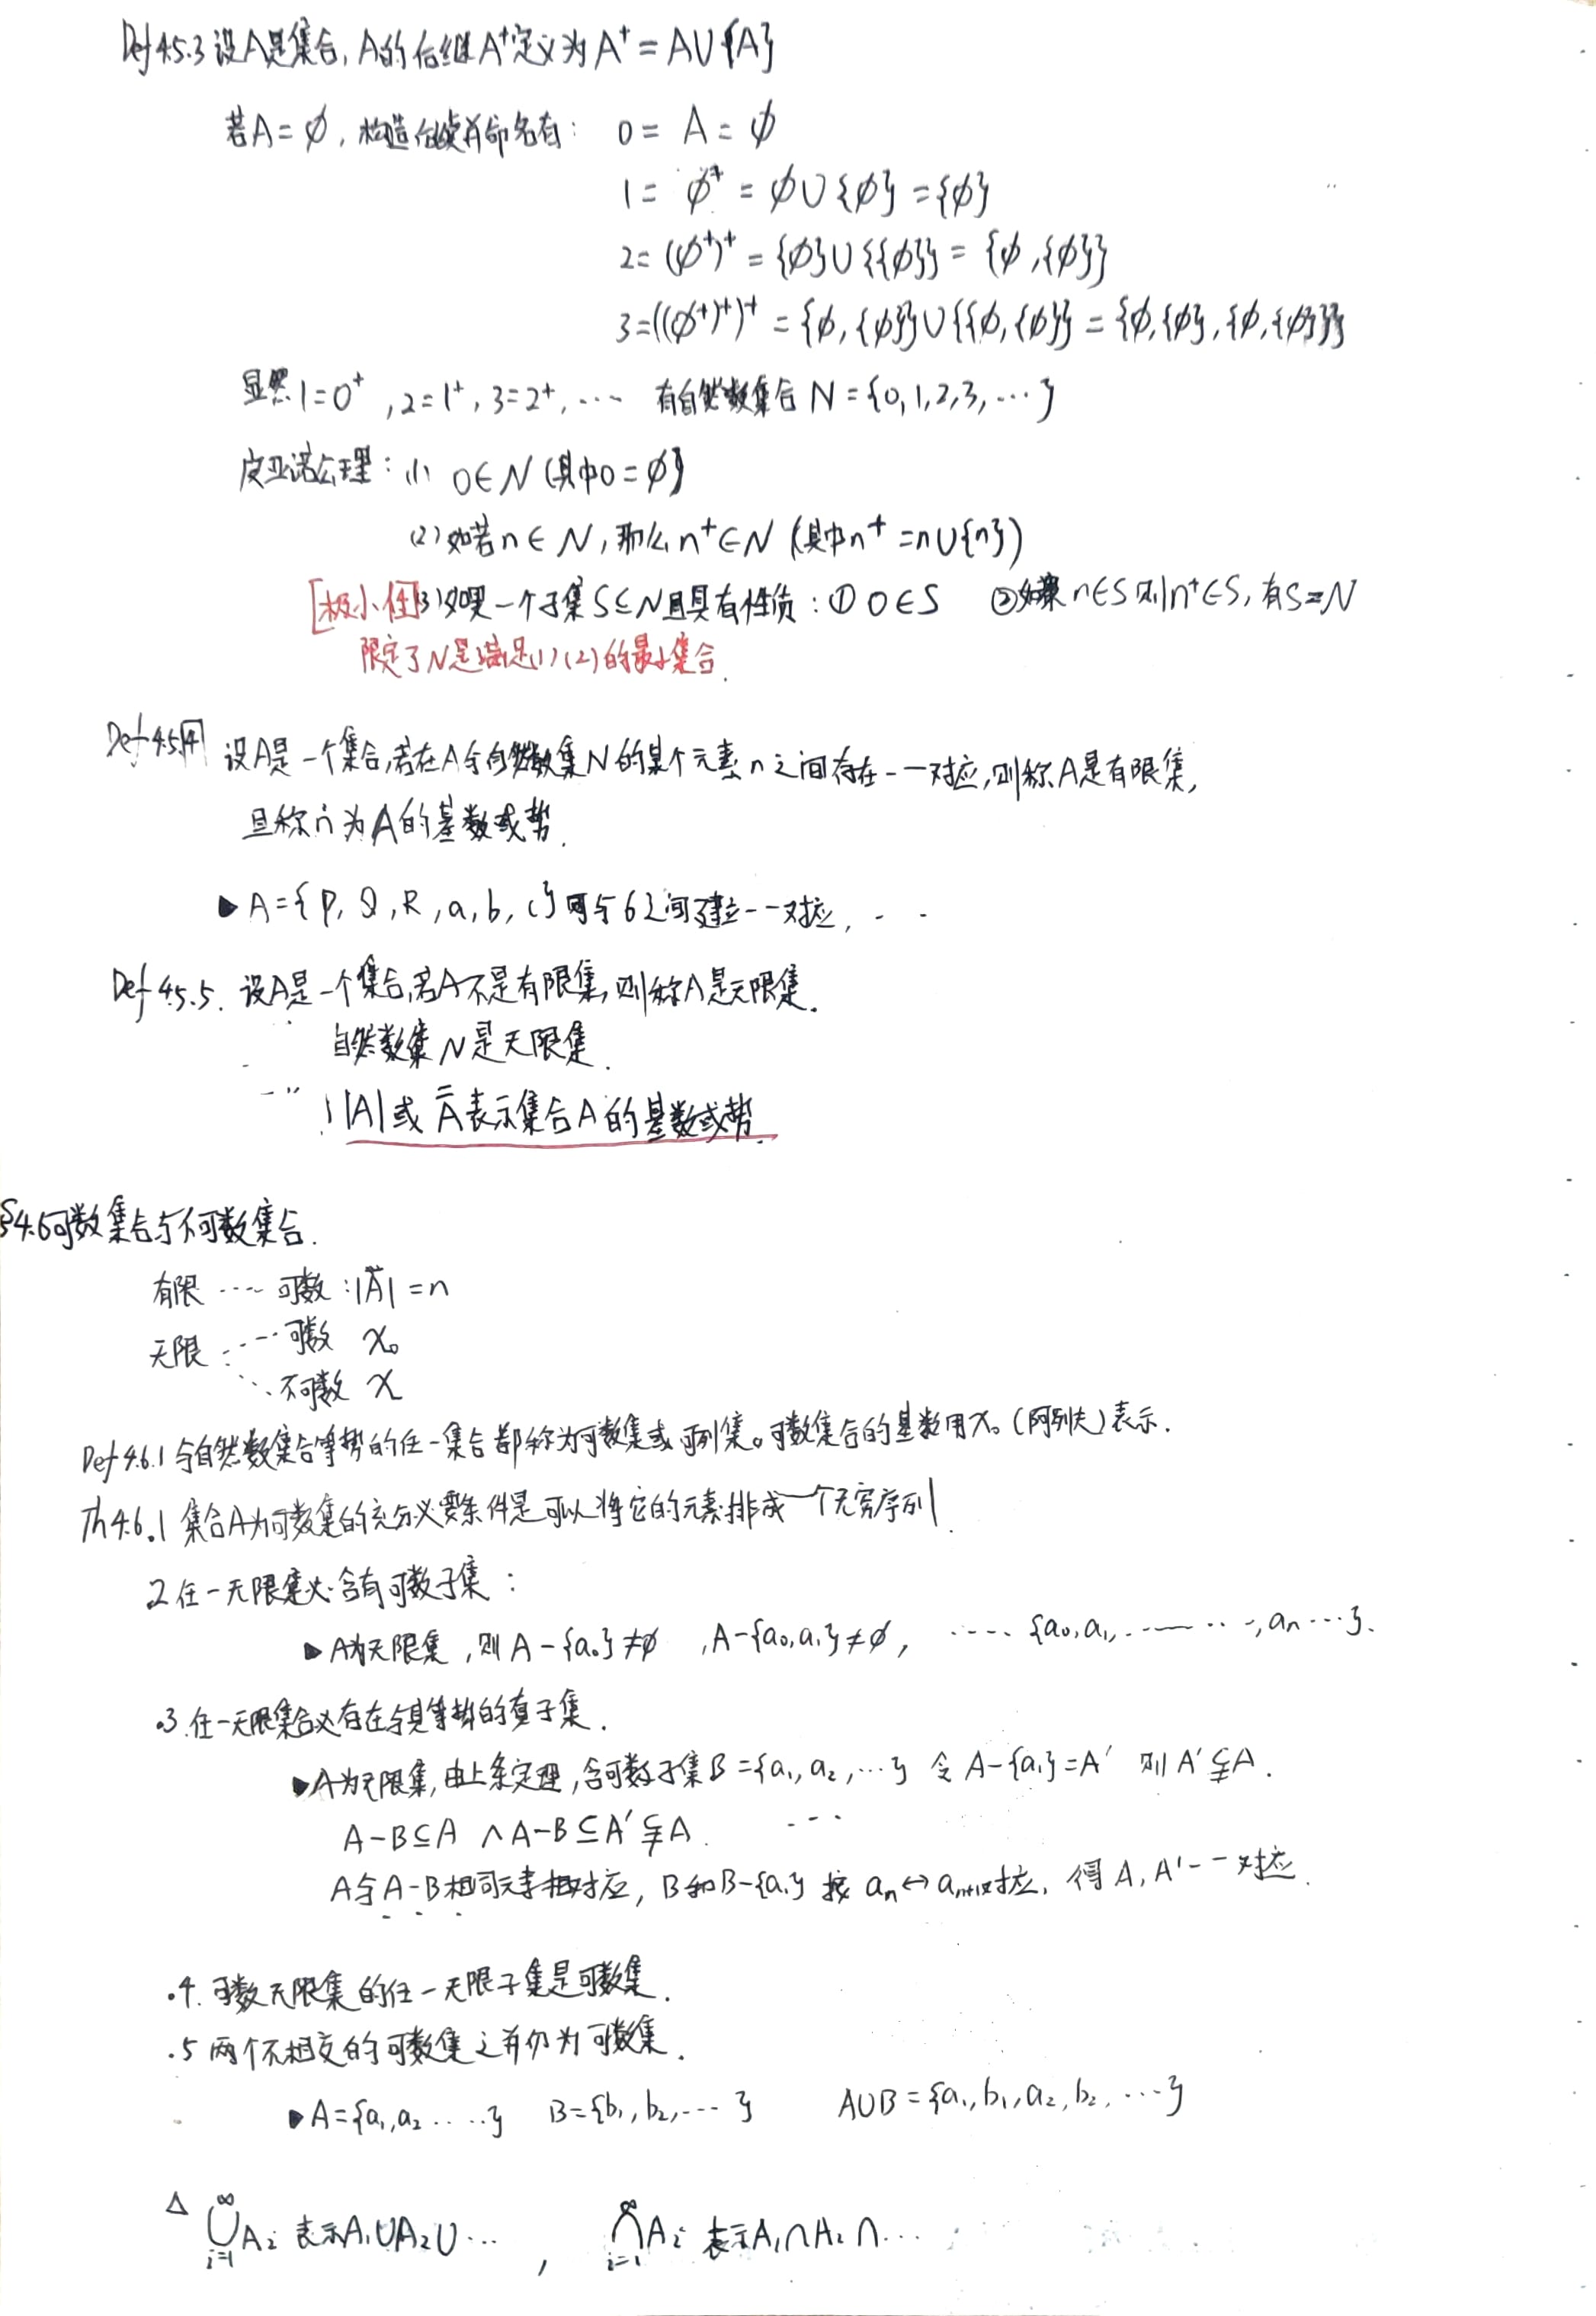 Def 4.5.3 设A是集合, A的后继A⁺定义为 A⁺ = A∪{A}
若A = ∅, 构造后续并命名有: 0 = A = ∅
1 = ∅⁺ = ∅∪{∅} = {∅}
2 = (∅⁺)⁺ = {∅}∪{{∅}} = {∅,{∅}}
3 = ((∅⁺)⁺)⁺ = {∅,{∅}}∪{{∅,{∅}} = {∅,{∅},{∅,{∅}}}
显然 1=0⁺, 2=1⁺, 3=2⁺, ··· 有自然数集合 N = {0,1,2,3,···}
皮亚诺公理: (1) 0∈N (其中0=∅)
(2) 如若n∈N, 那么n⁺∈N (其中n⁺ = n∪{n})
[极小性](3) 如果一个子集S⊆N且具有性质: ① 0∈S ②如果n∈S则n⁺∈S, 有S=N
限定了N是满足(1)(2)的最小集合.
Def 4.5.4 设A是一个集合,若在A与自然数集N的某个元素n之间存在一一对应,则称A是有限集,
且称n为A的基数或势.
▶ A={P, Q, R, a, b, c} 可与6之间建立一一对应, - -
Def 4.5.5. 设A是一个集合,若A不是有限集,则称A是无限集.
自然数集N是无限集.
! |A|或A̿表示集合A的基数或势.
§4.6可数集合与不可数集合.
有限 ···· 可数: |A| = n
无限 ···· 可数 ℵ₀
··· 不可数 ℵ
Def 4.6.1 与自然数集合等势的任一集合都称为可数集或可列集。可数集合的基数用ℵ₀ (阿列夫) 表示.
Th 4.6.1 集合A为可数集的充分必要条件是可以将它的元素排成一个无穷序列.
.2 任一无限集必含有可数子集:
▶ A为无限集, 则 A-{a₀}≠∅ , A-{a₀,a₁}≠∅, ····· {a₀,a₁,·······,aₙ···}.
.3. 任一无限集合必存在与其等势的真子集.
▶ A为无限集, 由上条定理, 含可数子集B={a₁,a₂,···} 令 A-{a₁}=A′ 则 A′⊊A.
A-B⊆A ∧ A-B⊆A′⊊A. ···
A与A-B相同元素相对应, B和B-{a₁} 按 aₙ↔aₙ₊₁对应, 得 A, A′一一对应.
.4. 可数无限集的任一无限子集是可数集.
.5 两个不相交的可数集之并仍为可数集.
▶ A={a₁,a₂·····} B={b₁,b₂,···} A∪B={a₁,b₁,a₂,b₂,···}
△ ⋃_{i=1}^{∞} Aᵢ 表示A₁∪A₂∪···, ⋂_{i=1}^{∞} Aᵢ 表示A₁∩A₂∩···